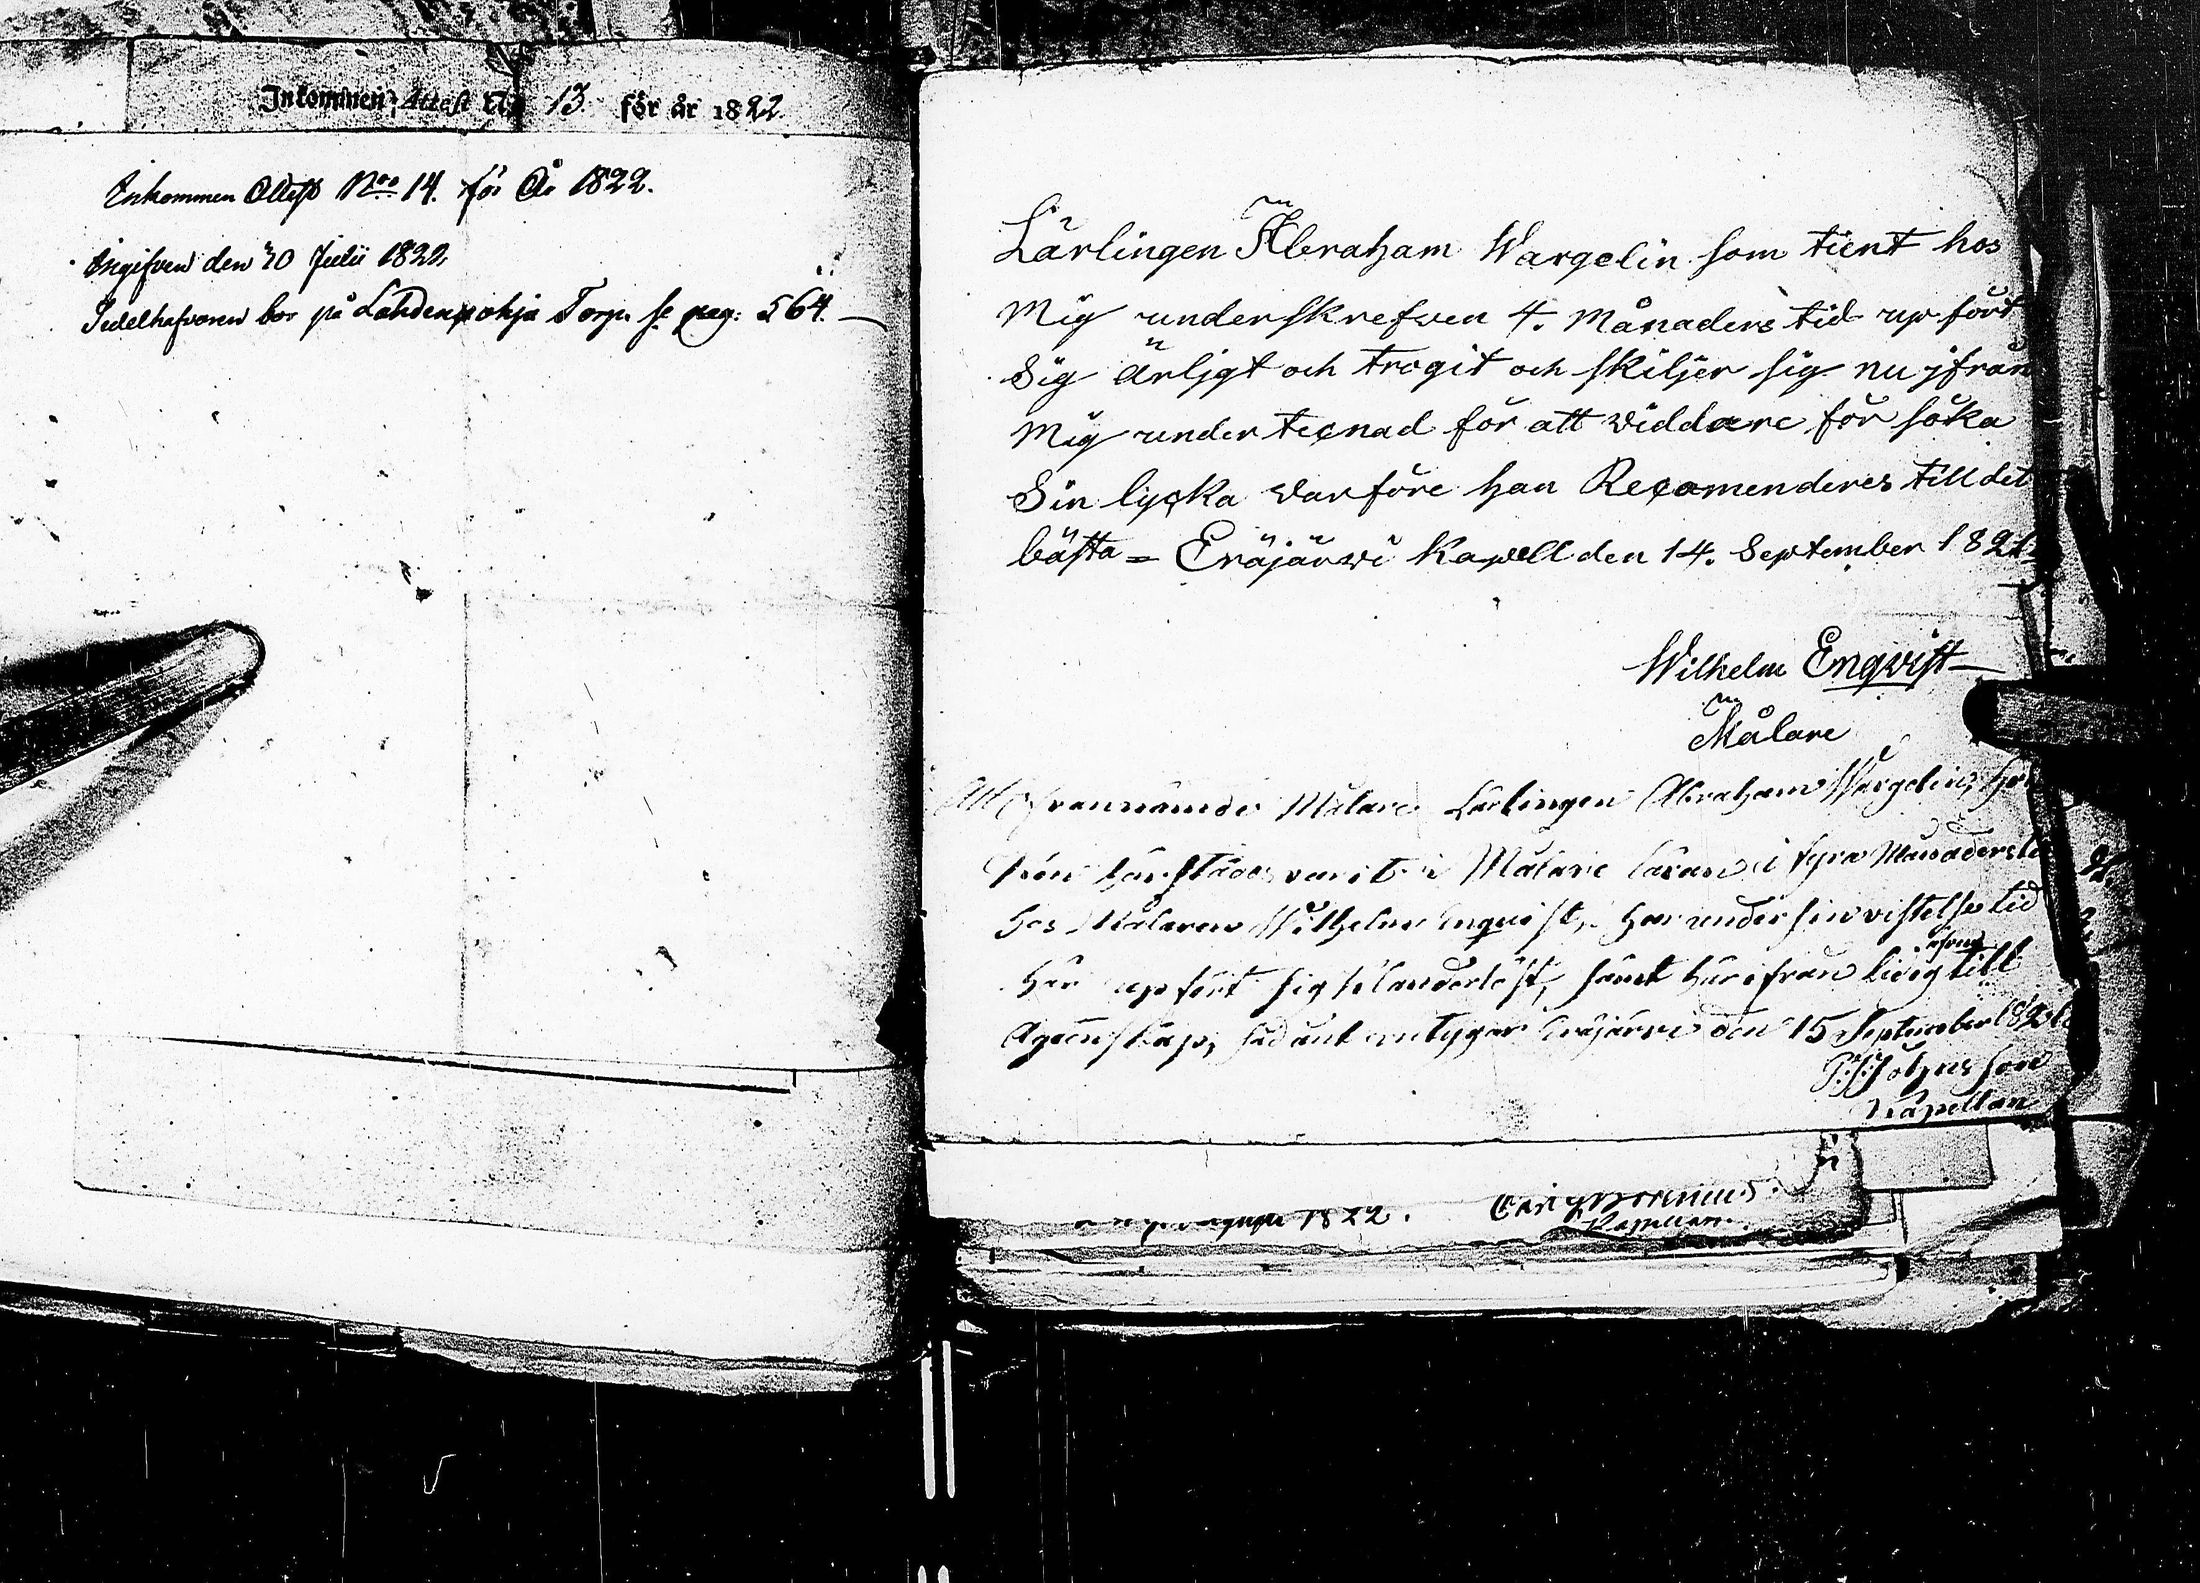 Inkommen Attest No 13 för år 1822.
Inkommen Attest Nro 14. för År 1822.
Ingifven den 30 Julii 1822
Sedelhafvaren bor på Lahdenpohja Torp. se pag: 564.
Lärlingen Abraham Wargelin som tient hos
Mig underskrefwen 4. Månaders tid up fört
Sig ärligt och trogit och skiljer sig nu ifrån
Mig under tecnad för att viddare för söka
Sin lycka varföre han Recomenderes till det
bästa = Eräjärwi Kapell den 14. September 1821
Wilhelm Enqvist
Målare
Att ofvannämde Målare Lärlingen Abraham Wargelin,
varit i Målare läran i fyra Månaders
hos Målaren Wilhelm Enquist, har under sin vistelse tid
här upfört sig oklanderlöst, samt härifrån ledig till
ägtenskap, sådant intygar Eräjärvi den 15 September 1821
Johnsson
Kapellan
1822.
Kapellan.